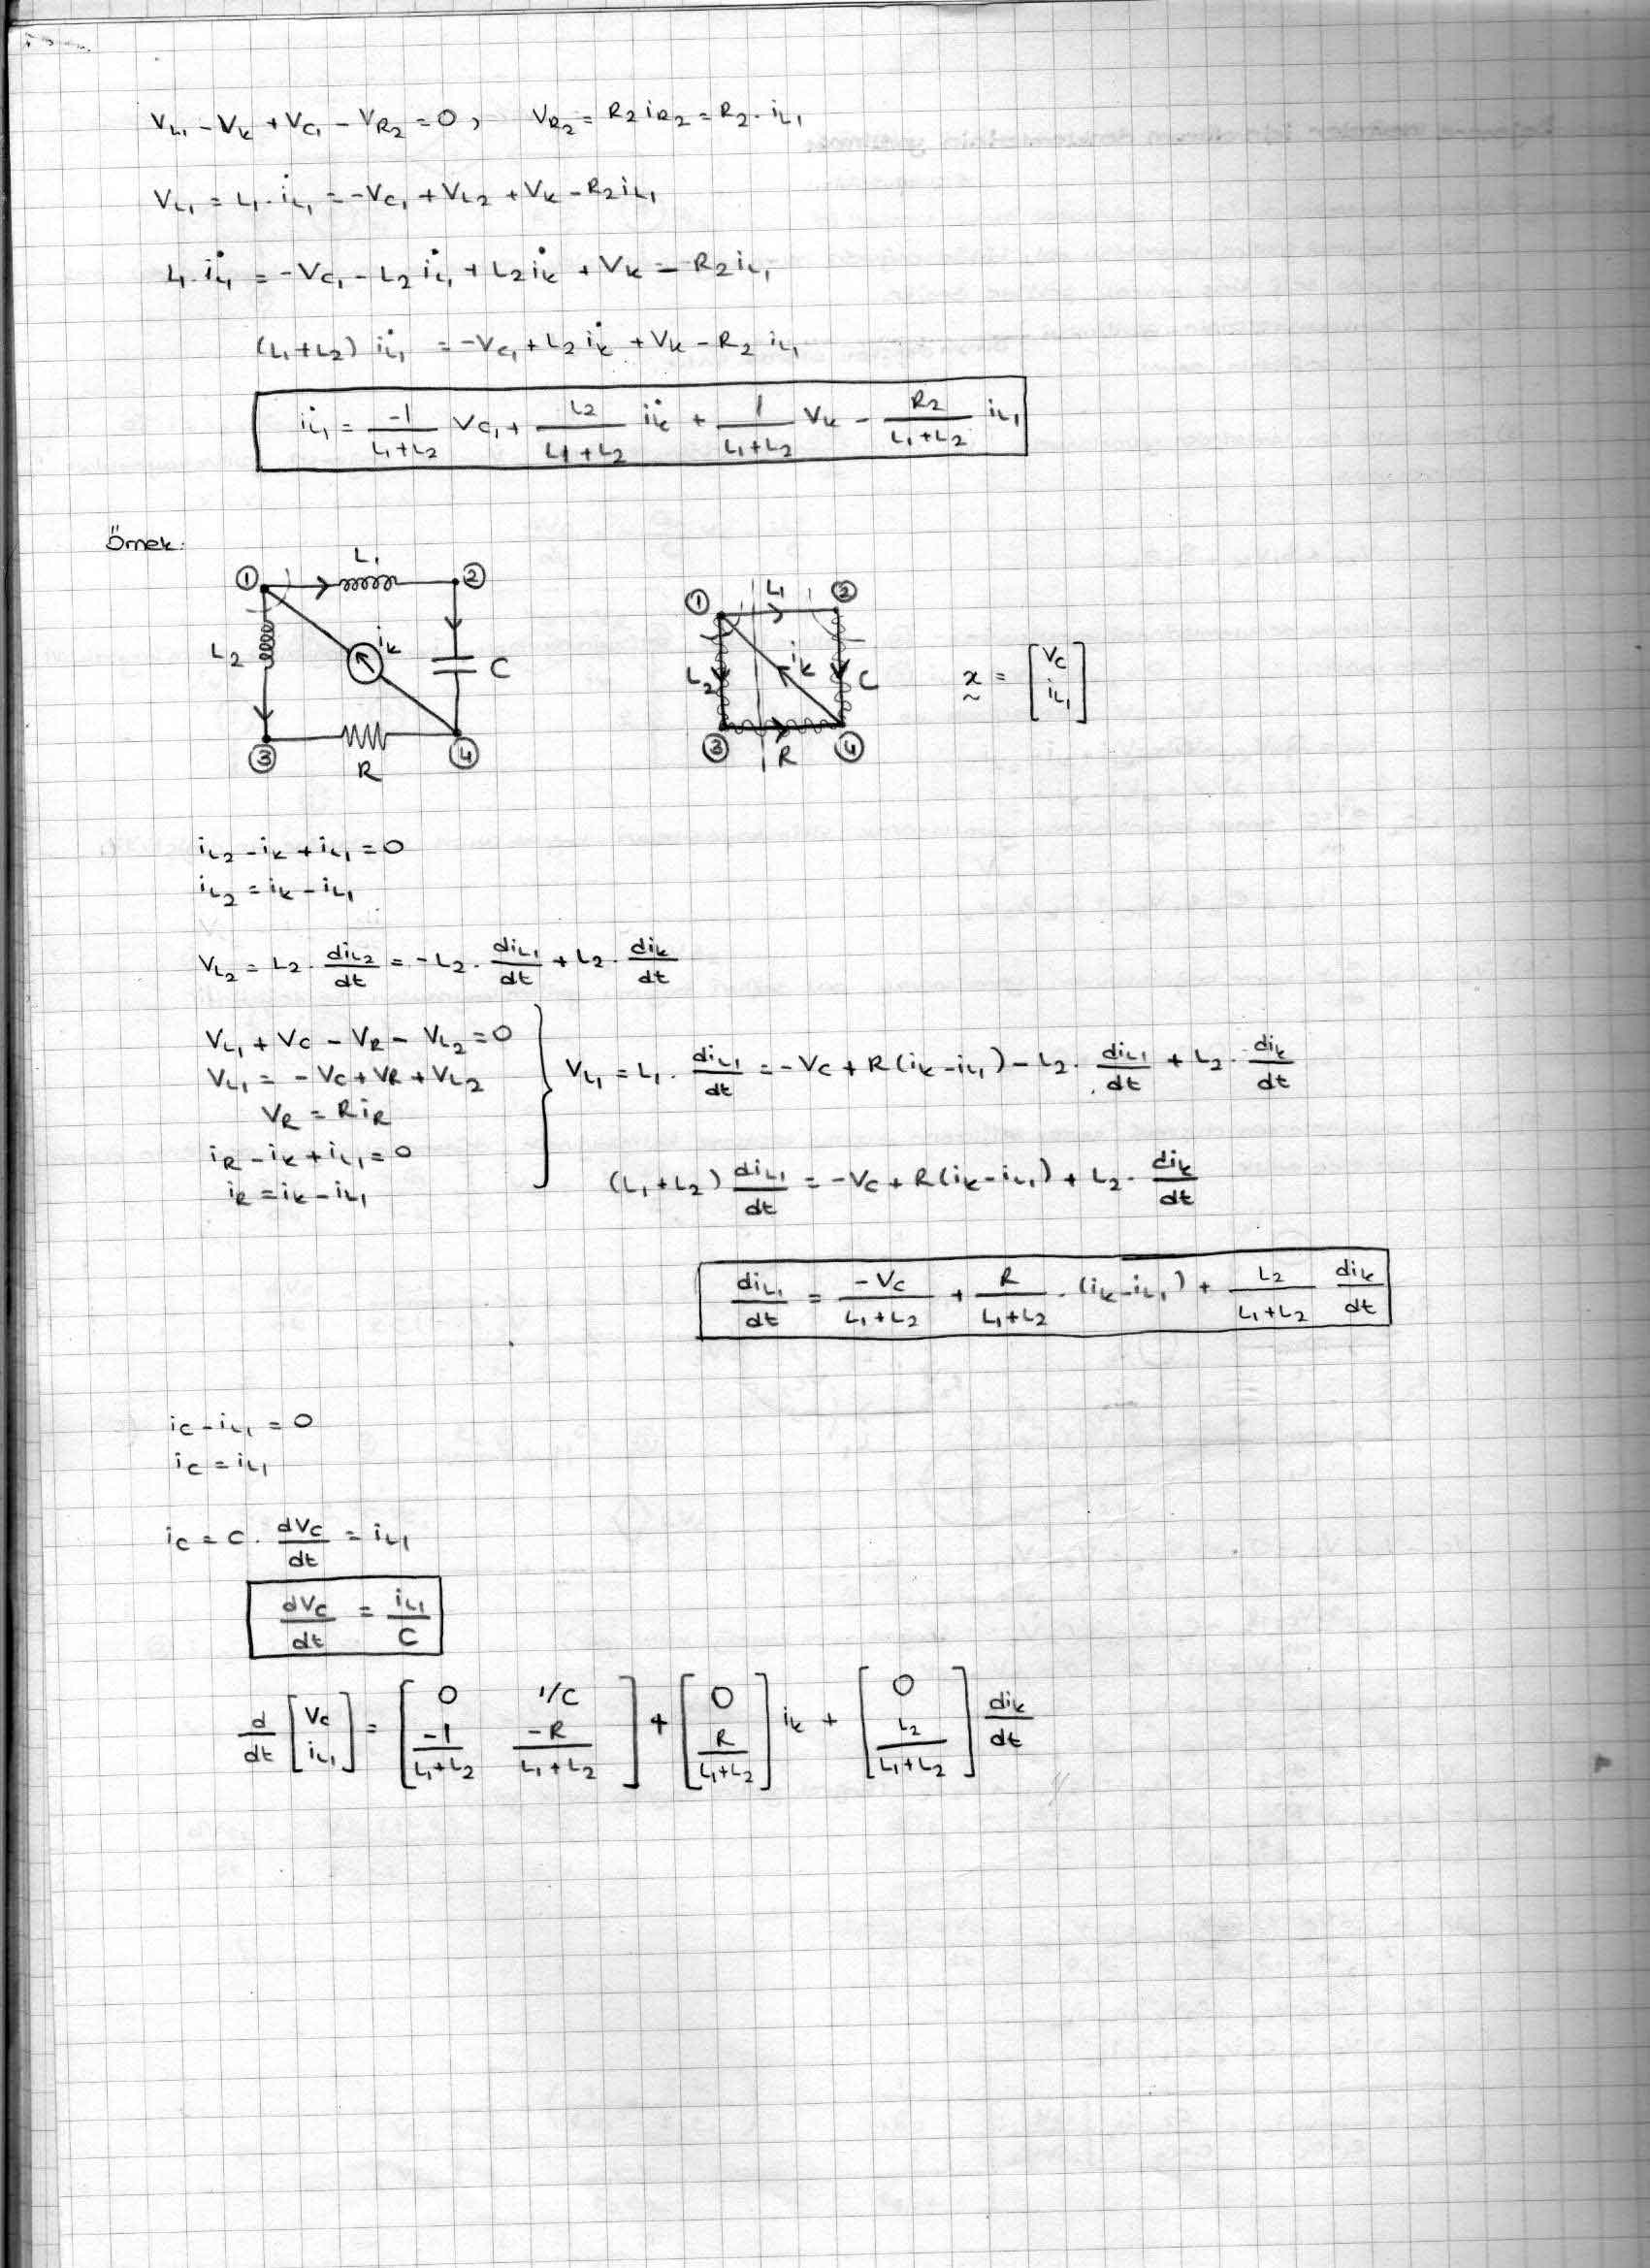 V_L1 - V_k + V_C1 - V_R2 = 0 , V_R2 = R2 i_R2 = R2 . i_L1
V_L1 = L1 . i̇_L1 = -V_C1 + V_L2 + V_k - R2 i_L1
L1 . i̇_L1 = -V_C1 - L2 i̇_L1 + L2 i̇_k + V_k - R2 i_L1
(L1+L2) i̇_L1 = -V_C1 + L2 i̇_k + V_k - R2 i_L1
i̇_L1 = -1/(L1+L2) V_C1 + L2/(L1+L2) i̇_k + 1/(L1+L2) V_k - R2/(L1+L2) i_L1
Örnek:
① L1 ②
L2 i_k C
③ R ④
① L1 ②
L2 i_k C
③ R ④
x = [V_C ; i_L1]
i_L2 - i_k + i_L1 = 0
i_L2 = i_k - i_L1
V_L2 = L2 . di_L2/dt = -L2 . di_L1/dt + L2 . di_k/dt
V_L1 + V_C - V_R - V_L2 = 0
V_L1 = -V_C + V_R + V_L2
V_R = R i_R
i_R - i_k + i_L1 = 0
i_R = i_k - i_L1
V_L1 = L1 . di_L1/dt = -V_C + R(i_k - i_L1) - L2 . di_L1/dt + L2 . di_k/dt
(L1+L2) di_L1/dt = -V_C + R(i_k - i_L1) + L2 . di_k/dt
di_L1/dt = -V_C/(L1+L2) + R/(L1+L2) . (i_k - i_L1) + L2/(L1+L2) di_k/dt
i_C - i_L1 = 0
i_C = i_L1
i_C = C . dV_C/dt = i_L1
dV_C/dt = i_L1/C
d/dt [V_C ; i_L1] = [0 1/C ; -1/(L1+L2) -R/(L1+L2)] + [0 ; R/(L1+L2)] i_k + [0 ; L2/(L1+L2)] di_k/dt